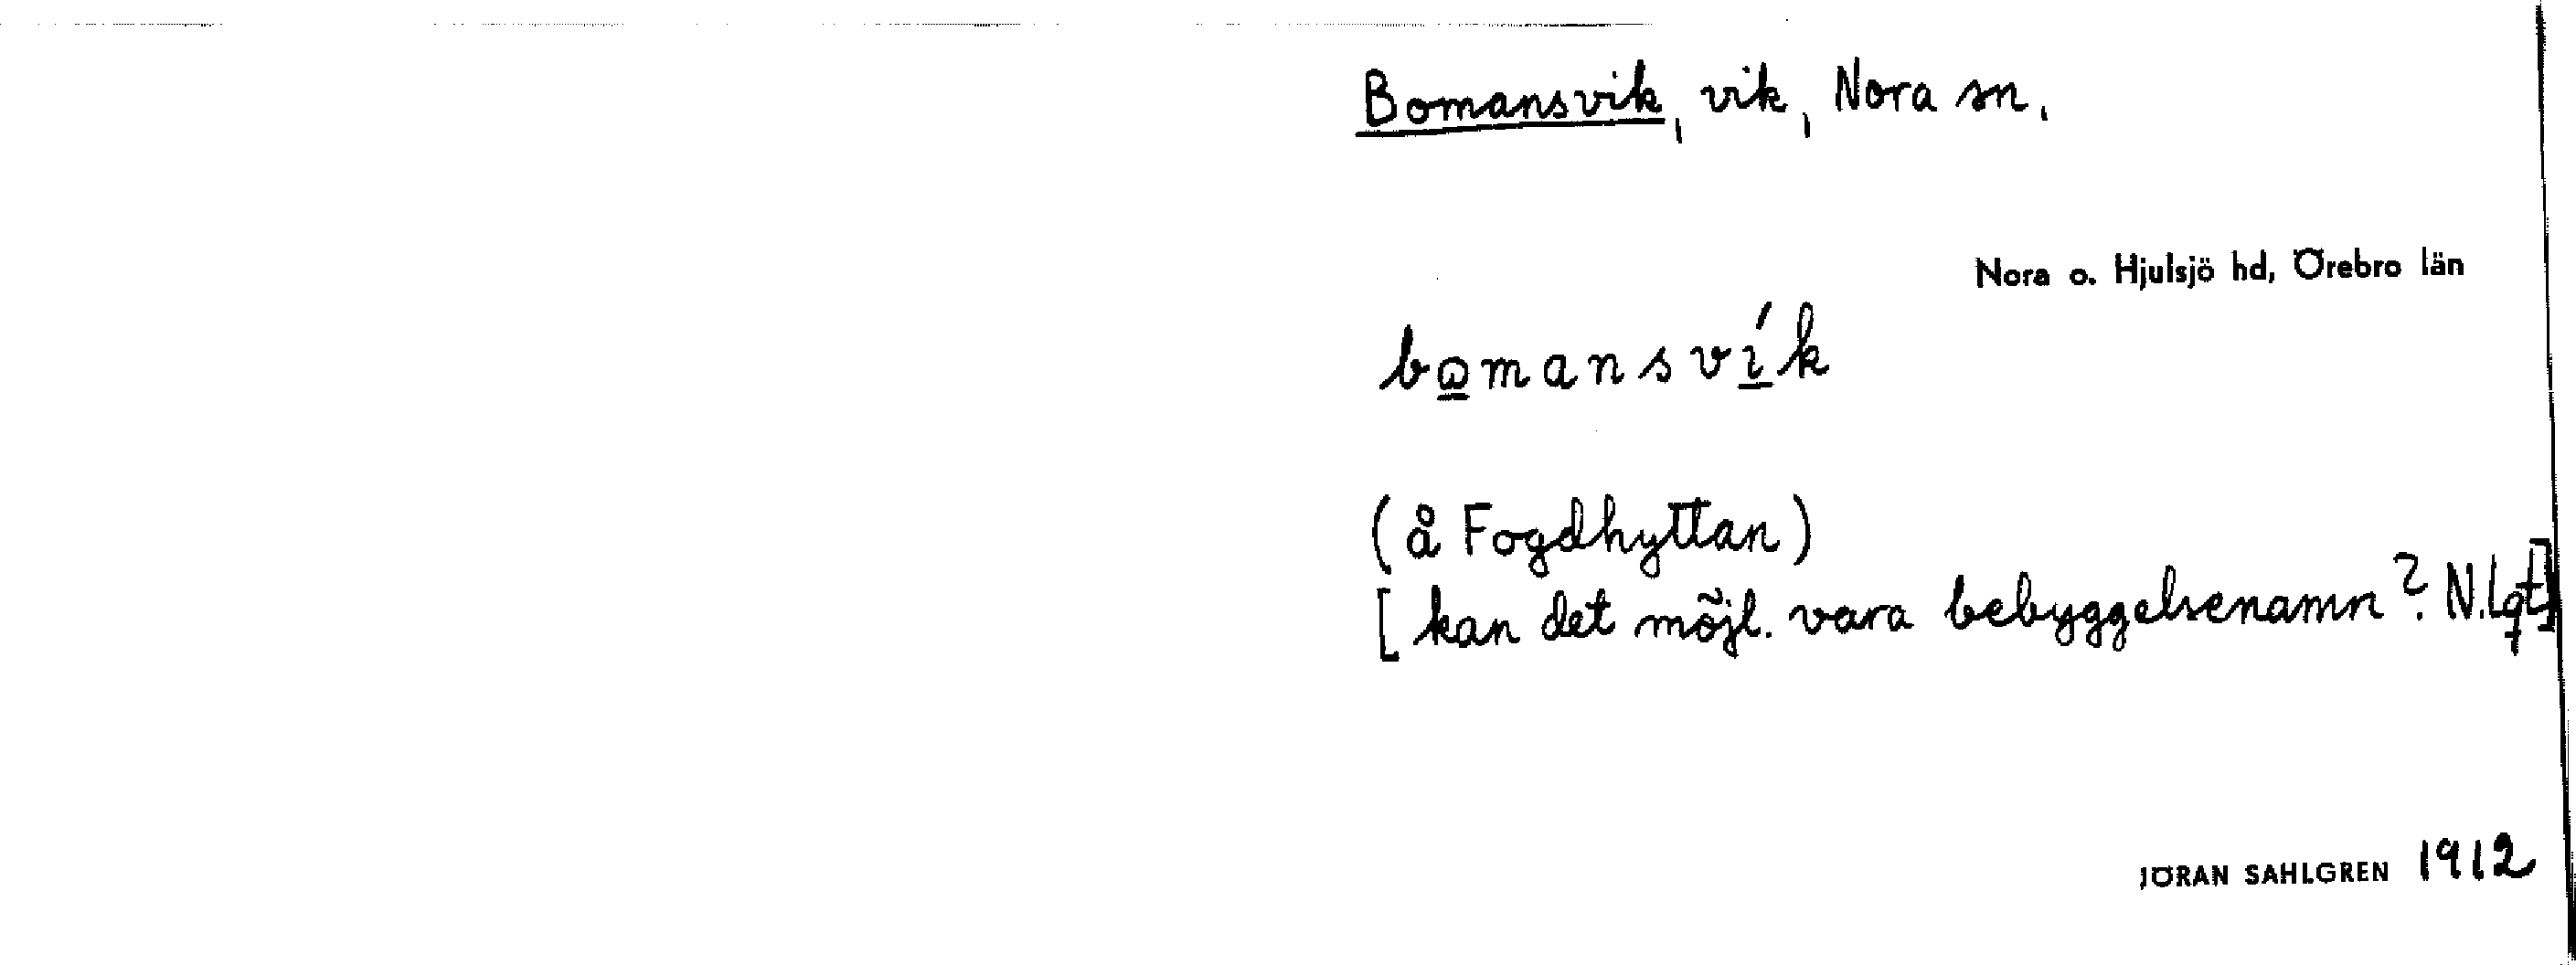 Bomansvik, vik, Nora sn.
Nora o. Hjulsjö hd, Örebro län
bo̲mansví̲k
(å Fogdhyttan)
[kan det möjl. vara bebyggelsenamn? N.Lqt]
JÖRAN SAHLGREN 1912